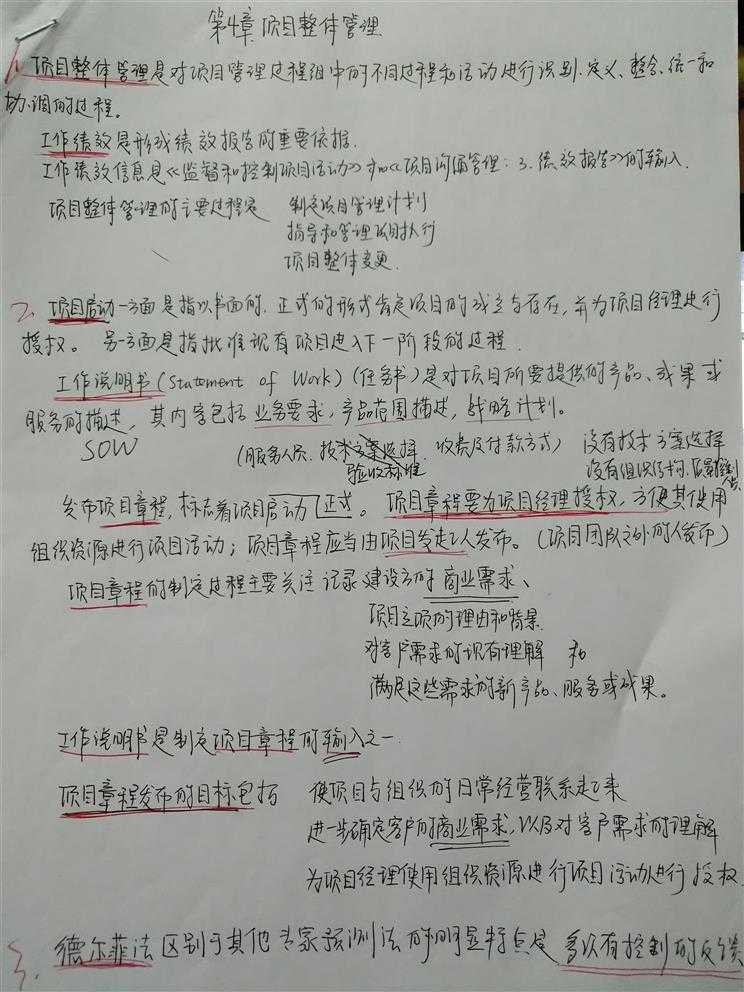 第4章 项目整体管理
1. 项目整体管理是对项目管理过程组中的不同过程和活动进行识别、定义、整合、统一和
协调的过程。
工作绩效是形成绩效报告的重要依据.
工作绩效信息是《监督和控制项目活动》和《项目沟通管理：3、绩效报告》的输入.
项目整体管理的主要过程是 制定项目管理计划
指导和管理项目执行
项目整体变更.
2. 项目启动一方面是指以书面的、正式的形式肯定项目的成立与存在，并为项目经理进行
授权。另一方面是指批准现有项目进入下一阶段的过程.
工作说明书(Statement of Work)(任务书)是对项目所要提供的产品、成果或
服务的描述，其内容包括业务要求，产品范围描述，战略计划。
SOW (服务人员、技术方案选择、收费及付款方式) 没有技术方案选择
验收标准 没有组织结构、
发布项目章程，标志着项目启动正式。项目章程要为项目经理授权，方便其使用
组织资源进行项目活动；项目章程应当由项目发起人发布。(项目团队之外的人发布)
项目章程的制定过程主要关注记录建设方的商业需求、
项目立项的理由和背景.
对客户需求的现有理解 和
满足这些需求的新产品、服务或成果。
工作说明书是制定项目章程的输入之一.
项目章程发布的目标包括 使项目与组织的日常经营联系起来
进一步确定客户的商业需求，以及对客户需求的理解
为项目经理使用组织资源进行项目活动进行授权
3. 德尔菲法区别于其他专家预测法的明显特点是 多次有控制的反馈